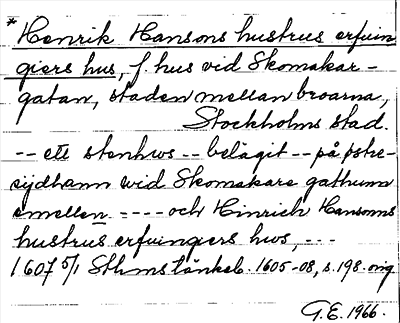 *Henrik Hansons hustrus erfuin
giers hus, f. hus vid Skomakar-
gatan, staden mellan broarna,
Stockholms stad.
-- ett stenhws -- belägit -- på östre
sijdhann wid Skomakare gathunn
emellen ---- och Hinrich Hansonns
hustrus erfuingers hws, ---
1607 5/1 Sthms tänkeb. 1605-08, s. 198. orig
G.E. 1966.